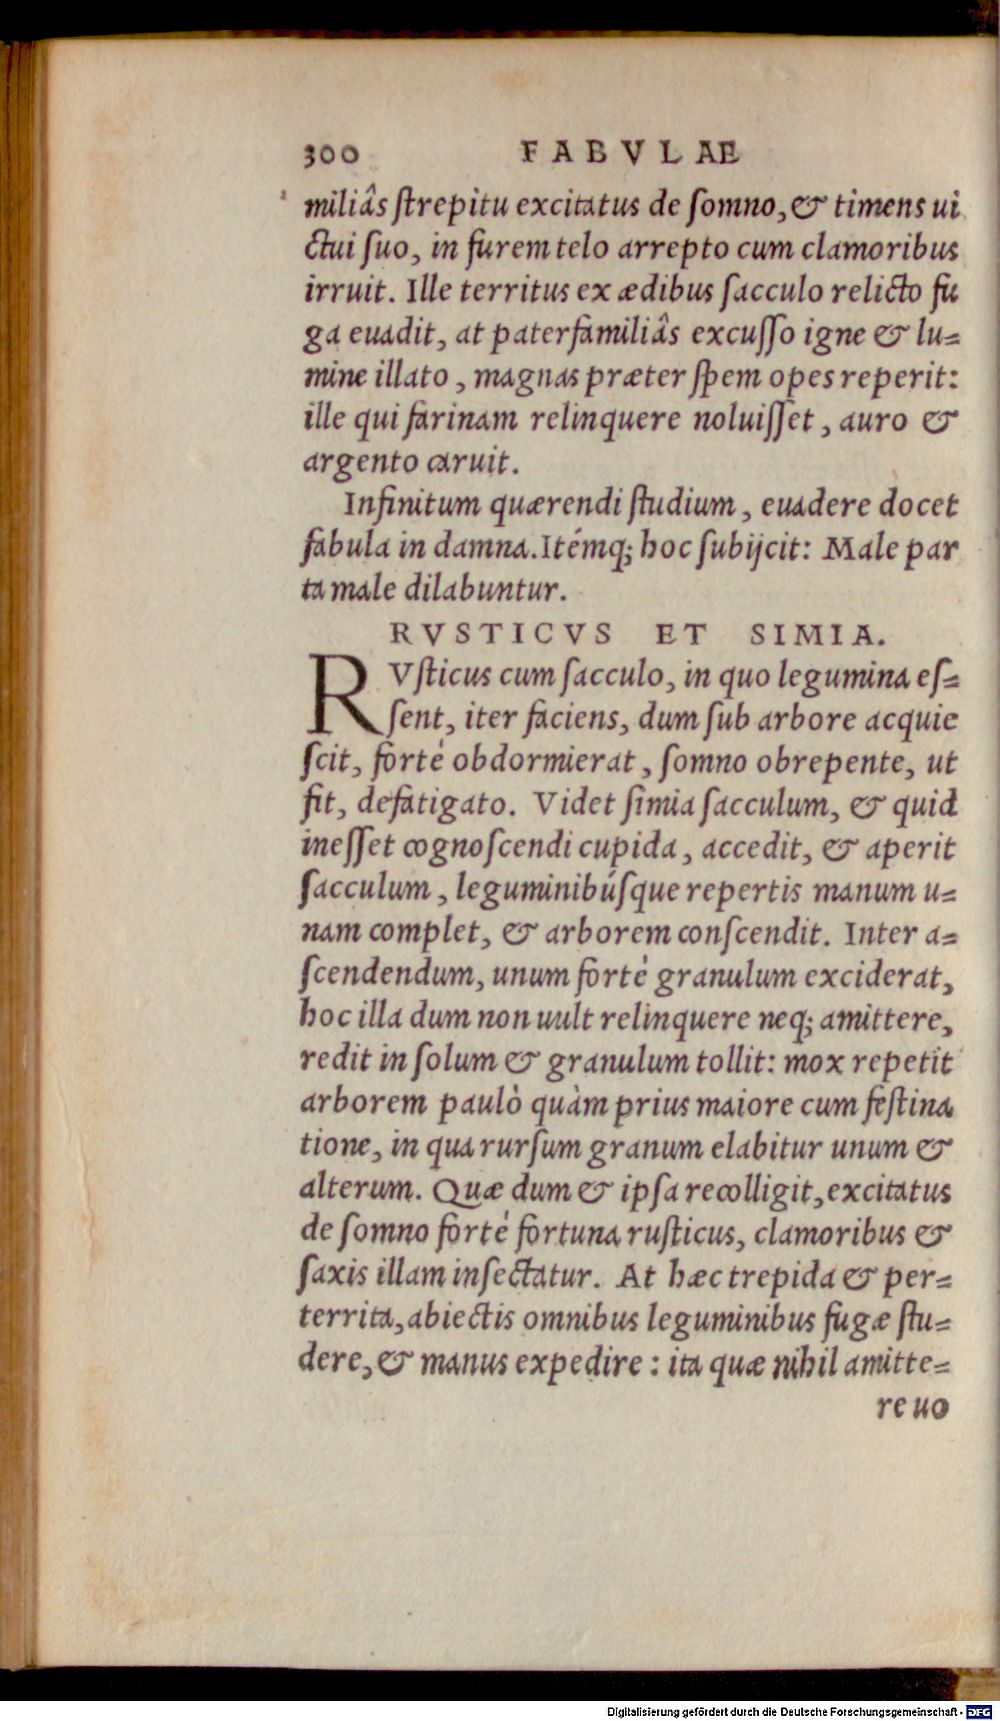 300 FABVLAE
miliâs ſtrepitu excitatus de ſomno, & timens ui
ctui ſuo, in furem telo arrepto cum clamoribus
irruit. Ille territus ex ædibus ſacculo relicto fu
ga euadit, at paterfamiliâs excuſſo igne & lu=
mine illato, magnas præter ſpem opes reperit:
ille qui farinam relinquere noluiſſet, auro &
argento caruit.
Infinitum quærendi ſtudium, euadere docet
fabula in damna. Itémq; hoc ſubijcit: Male par
ta male dilabuntur.
RVSTICVS ET SIMIA.
RVſticus cum ſacculo, in quo legumina eſ=
ſent, iter faciens, dum ſub arbore acquie
ſcit, forté obdormierat, ſomno obrepente, ut
fit, defatigato. Videt ſimia ſacculum, & quid
ineſſet cognoſcendi cupida, accedit, & aperit
ſacculum, leguminibúſque repertis manum u=
nam complet, & arborem conſcendit. Inter a=
ſcendendum, unum fortè granulum exciderat,
hoc illa dum non uult relinquere neq; amittere,
redit in ſolum & granulum tollit: mox repetit
arborem paulò quàm prius maiore cum feſtina
tione, in qua rurſum granum elabitur unum &
alterum. Quæ dum & ipſa recolligit, excitatus
de ſomno forté fortuna ruſticus, clamoribus &
ſaxis illam inſectatur. At hæc trepida & per=
territa, abiectis omnibus leguminibus fugæ ſtu=
dere, & manus expedire: ita quæ nihil amitte=
re uo
Digitalisierung gefördert durch die Deutsche Forschungsgemeinschaft - DFG